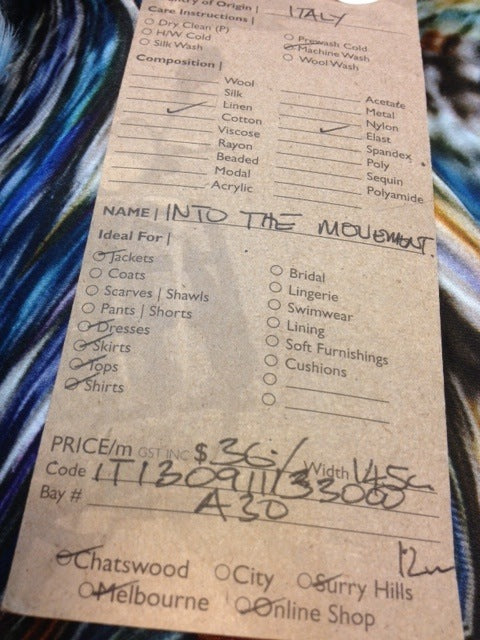 ntry of Origin | ITALY
Care Instructions |
Dry Clean (P)
H/W Cold
Silk Wash
Prewash Cold
Machine Wash
Wool Wash
Composition |
Wool
Silk
Linen
Cotton
Viscose
Rayon
Beaded
Modal
Acrylic
Acetate
Metal
Nylon
Elast
Spandex
Poly
Sequin
Polyamide
NAME | INTO THE MOVEMENT.
Ideal For |
Jackets
Coats
Scarves | Shawls
Pants | Shorts
Dresses
Skirts
Tops
Shirts
Bridal
Lingerie
Swimwear
Lining
Soft Furnishings
Cushions
PRICE/m GST INC $ 36./ Width 145c
Code IT130911133000
Bay # A30
12m
Chatswood City Surry Hills
Melbourne Online Shop